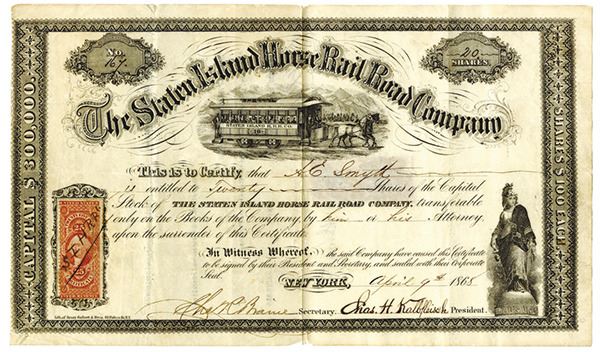 No.
167.
20
SHARES.
The Staten Island Horse Rail Road Company
STATEN ISLAND H.R.R. CO.
CAPITAL $300,000.
SHARES $100 EACH
This is to Certify, that A.E. Smyth
is entitled to Twenty Shares of the Capital
Stock of THE STATEN ISLAND HORSE RAIL ROAD COMPANY, transferable
only on the Books of the Company by him or his Attorney
upon the surrender of this Certificate
In Witness Whereof, the said Company have caused this Certificate
to be signed by their President and Secretary, and sealed with their Corporate
Seal.
NEW YORK, April 9th 1868
Secretary. Chas. H. Kalbfleisch President.